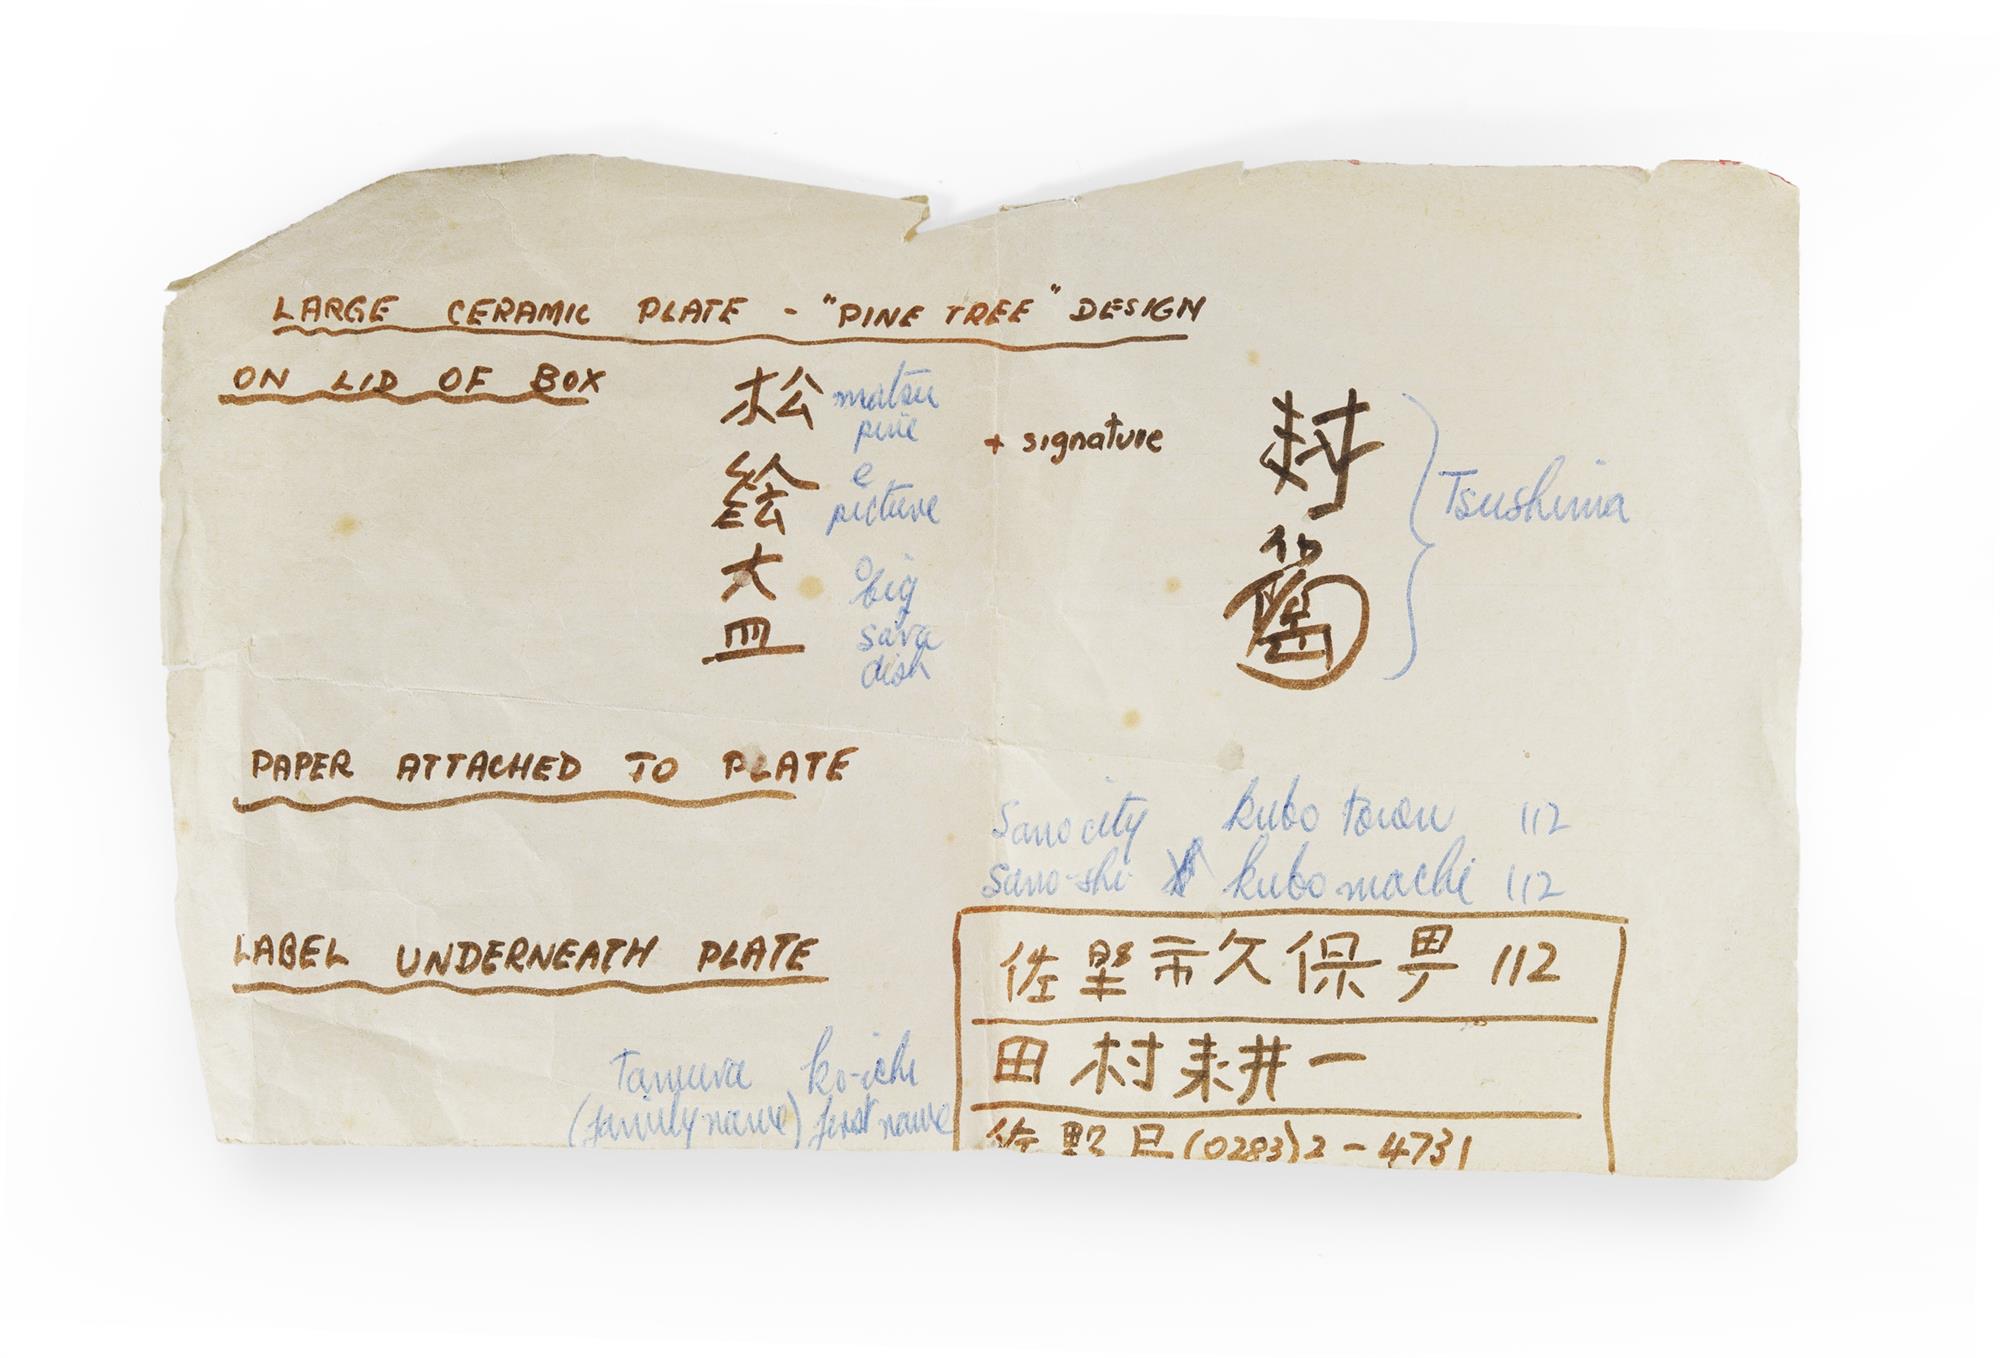 LARGE CERAMIC PLATE - "PINE TREE" DESIGN
ON LID OF BOX
松 matsu
pine
絵 e
picture
大 o
big
皿 sara
dish
+ signature
Tsushima
PAPER ATTACHED TO PLATE
Sano city kubo town 112
Sano-shi kubo machi 112
LABEL UNDERNEATH PLATE
佐野市久保町 112
田村耕一
Tamura ko-ichi
(family name) first name
佐野 (0283)2-4731